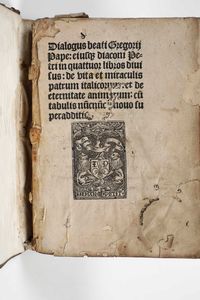 Dialogus beati Gregorij
Pape: eiusq diaconi Pe-
tri in quattuor libros diui
sus: de vita et miraculis
patrum italicorum: et de
eternitate animarum: cū
tabulis nouo su
peradditis